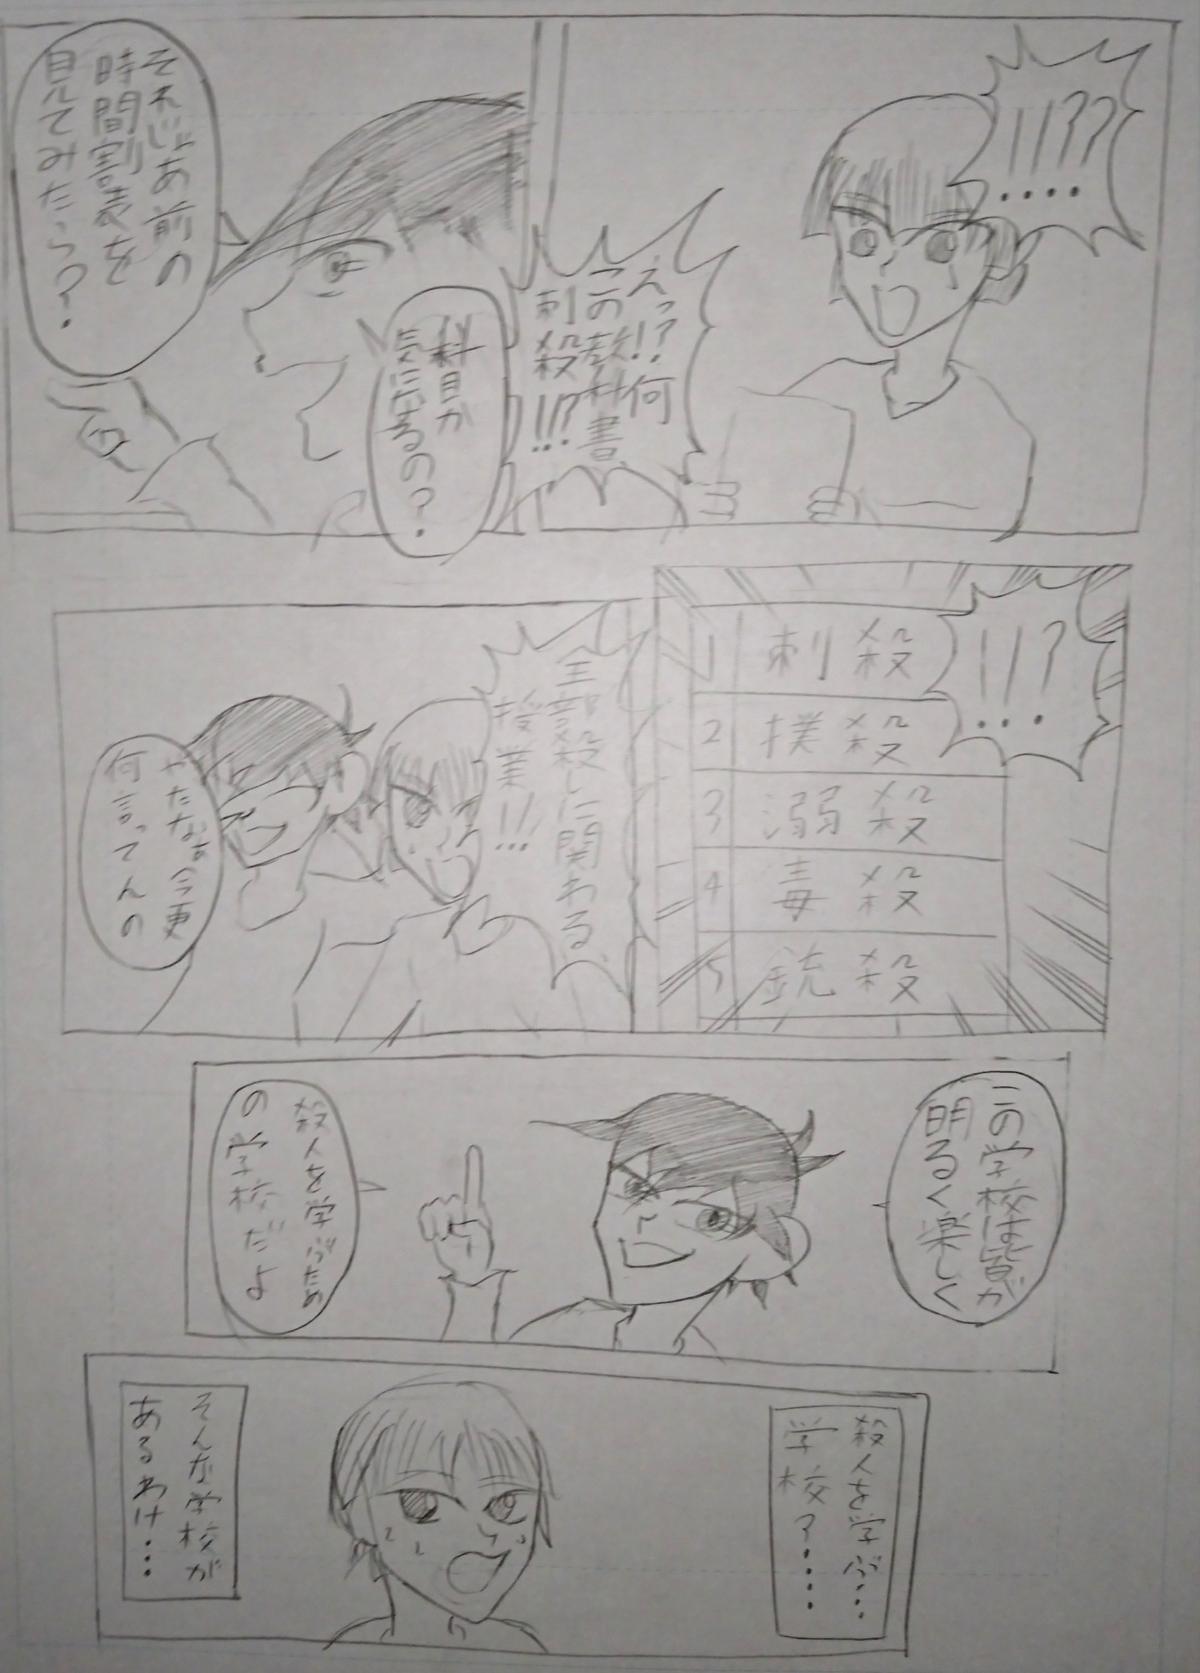 !!??
・・・・
えっ?!何
この教科書、
刺殺!!?
科目が
気になるの?
それじゃあ前の
時間割表を
見てみたら?
!!?
・・・
1 刺殺
2 撲殺
3 溺殺
4 毒殺
5 銃殺
全部殺しに関わる、
授業!!!
やだなぁ今更
何言ってんの
この学校は皆が
明るく楽しく
殺人を学ぶため
の学校だよ
殺人を学ぶ…
学校?……
そんな学校が
あるわけ…